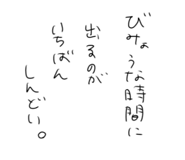 びみょうな時間に
出るのが
いちばん
しんどい。